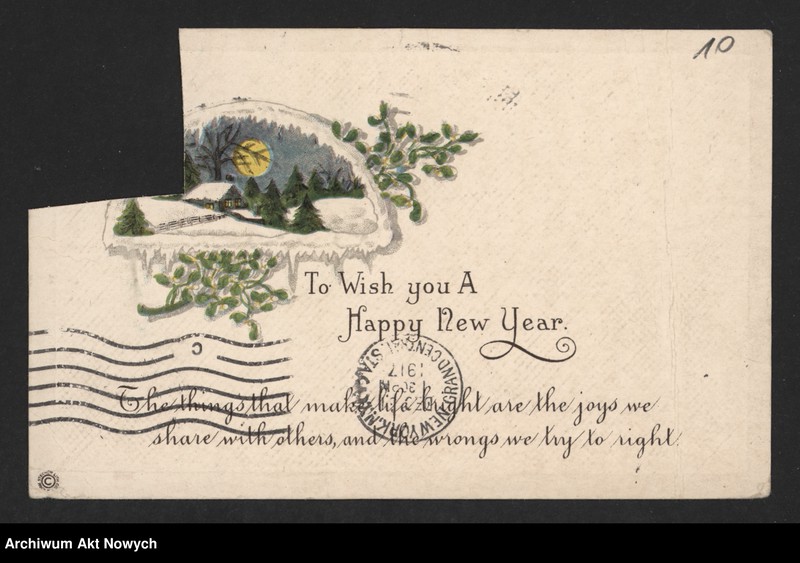 10
To Wish you A
Happy New Year.
The things that make life bright are the joys we
share with others, and the wrongs we try to right.
C
NEW YORK, N.Y.
GRAND CENTRAL STA.
1917
©
Archiwum Akt Nowych